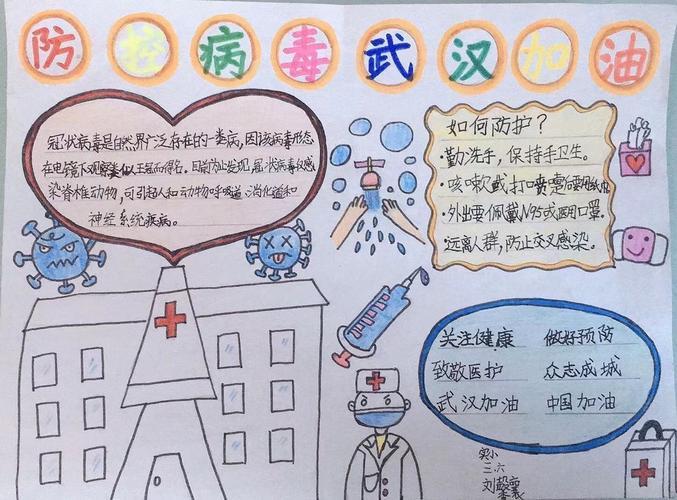 防控病毒武汉加油
冠状病毒是自然界广泛存在的一类病,因该病毒形态
在电镜下观察类似王冠而得名。目前为止发现,冠状病毒仅感
染脊椎动物,可引起人和动物呼吸道、消化道和
神经系统疾病。
如何防护?
·勤洗手,保持手卫生。
·咳嗽或打喷嚏
·外出要佩戴N95或医用口罩。
·远离人群,防止交叉感染。
关注健康 做好预防
致敬医护 众志成城
武汉加油 中国加油
实小
三.六
刘馨